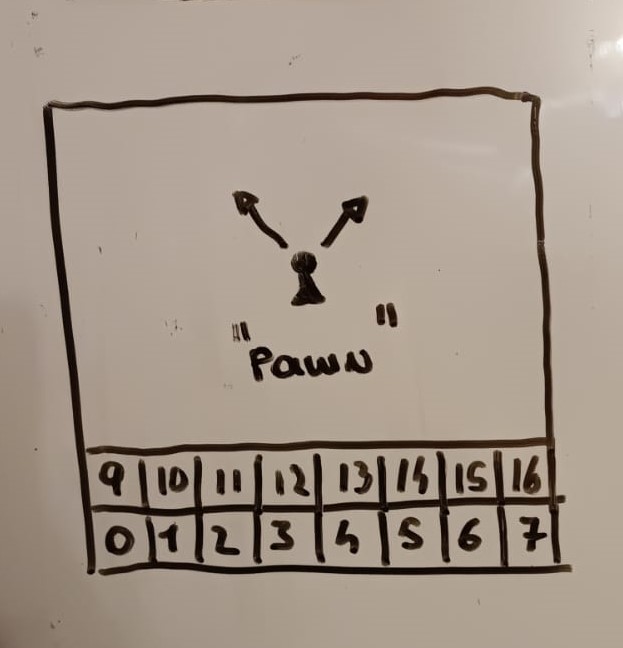 "Pawn"
9 10 11 12 13 14 15 16
0 1 2 3 4 5 6 7